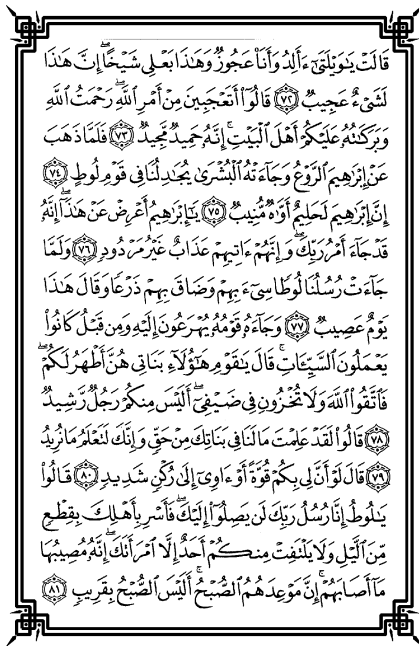 قَالَتْ يَٰوَيْلَتَىٰٓ ءَأَلِدُ وَأَنَا۠ عَجُوزٌ وَهَٰذَا بَعْلِى شَيْخًا ۖ إِنَّ هَٰذَا
لَشَىْءٌ عَجِيبٌ ٧٢ قَالُوٓا۟ أَتَعْجَبِينَ مِنْ أَمْرِ ٱللَّهِ ۖ رَحْمَتُ ٱللَّهِ
وَبَرَكَٰتُهُۥ عَلَيْكُمْ أَهْلَ ٱلْبَيْتِ ۚ إِنَّهُۥ حَمِيدٌ مَّجِيدٌ ٧٣ فَلَمَّا ذَهَبَ
عَنْ إِبْرَٰهِيمَ ٱلرَّوْعُ وَجَآءَتْهُ ٱلْبُشْرَىٰ يُجَٰدِلُنَا فِى قَوْمِ لُوطٍ ٧٤
إِنَّ إِبْرَٰهِيمَ لَحَلِيمٌ أَوَّٰهٌ مُّنِيبٌ ٧٥ يَٰٓإِبْرَٰهِيمُ أَعْرِضْ عَنْ هَٰذَآ ۖ إِنَّهُۥ
قَدْ جَآءَ أَمْرُ رَبِّكَ ۖ وَإِنَّهُمْ ءَاتِيهِمْ عَذَابٌ غَيْرُ مَرْدُودٍ ٧٦ وَلَمَّا
جَآءَتْ رُسُلُنَا لُوطًا سِىٓءَ بِهِمْ وَضَاقَ بِهِمْ ذَرْعًا وَقَالَ هَٰذَا
يَوْمٌ عَصِيبٌ ٧٧ وَجَآءَهُۥ قَوْمُهُۥ يُهْرَعُونَ إِلَيْهِ وَمِن قَبْلُ كَانُوا۟
يَعْمَلُونَ ٱلسَّيِّـَٔاتِ ۚ قَالَ يَٰقَوْمِ هَٰٓؤُلَآءِ بَنَاتِى هُنَّ أَطْهَرُ لَكُمْ ۖ
فَٱتَّقُوا۟ ٱللَّهَ وَلَا تُخْزُونِ فِى ضَيْفِىٓ ۖ أَلَيْسَ مِنكُمْ رَجُلٌ رَّشِيدٌ
٧٨ قَالُوا۟ لَقَدْ عَلِمْتَ مَا لَنَا فِى بَنَاتِكَ مِنْ حَقٍّ وَإِنَّكَ لَتَعْلَمُ مَا نُرِيدُ
٧٩ قَالَ لَوْ أَنَّ لِى بِكُمْ قُوَّةً أَوْ ءَاوِىٓ إِلَىٰ رُكْنٍ شَدِيدٍ ٨٠ قَالُوا۟
يَٰلُوطُ إِنَّا رُسُلُ رَبِّكَ لَن يَصِلُوٓا۟ إِلَيْكَ ۖ فَأَسْرِ بِأَهْلِكَ بِقِطْعٍ
مِّنَ ٱلَّيْلِ وَلَا يَلْتَفِتْ مِنكُمْ أَحَدٌ إِلَّا ٱمْرَأَتَكَ ۖ إِنَّهُۥ مُصِيبُهَا
مَآ أَصَابَهُمْ ۚ إِنَّ مَوْعِدَهُمُ ٱلصُّبْحُ ۚ أَلَيْسَ ٱلصُّبْحُ بِقَرِيبٍ ٨١